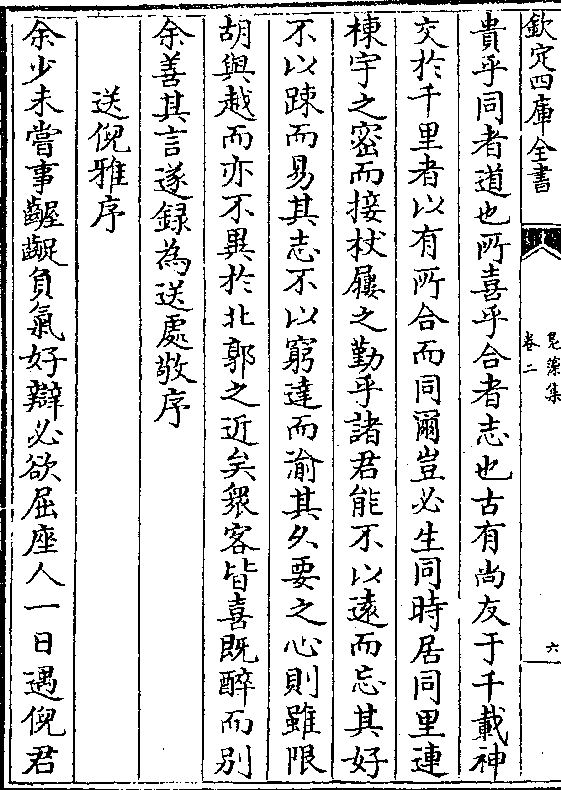 欽定四庫全書
鳬藻集
卷二
六
貴乎同者道也所喜乎合者志也古有尚友于千載神
交於千里者以有所合而同爾豈必生同時居同里連
棟宇之密而接杖屨之勤乎諸君能不以遠而忘其好
不以踈而易其志不以窮達而渝其久要之心則雖限
胡與越而亦不異於北郭之近矣衆客皆喜既醉而别
余善其言遂録為送處敬序
送倪雅序
余少未嘗事齷齪負氣好辯必欲屈座人一日遇倪君